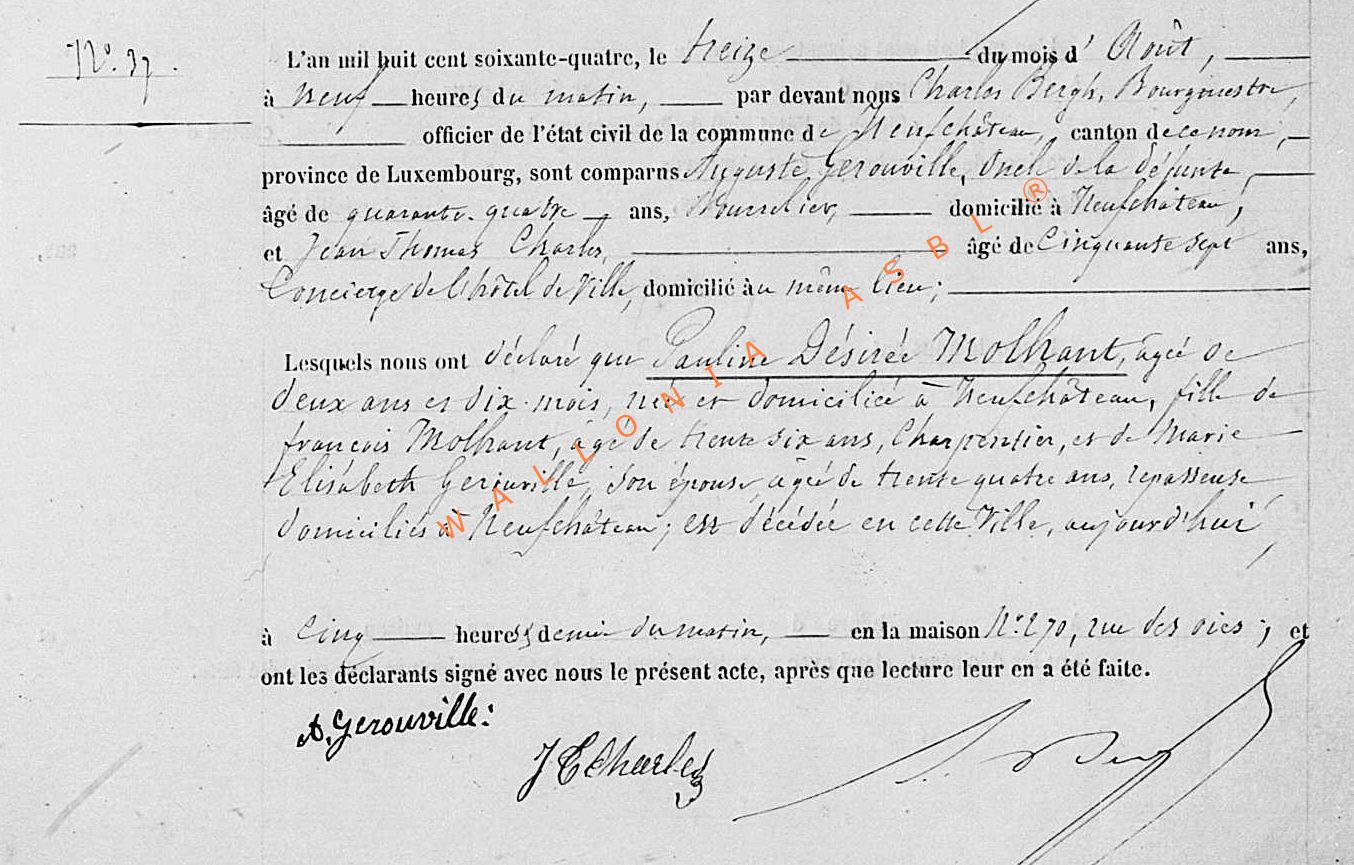 N° 37.
L'an mil huit cent soixante-quatre, le treize du mois d'Août,
à neuf heures du matin, par devant nous Charles Bergh, Bourgmestre,
officier de l'état civil de la commune de Neufchâteau, canton de ce nom,
province de Luxembourg, sont comparus Auguste Gerouville, Oncle de la défunte,
âgé de quarante-quatre ans, Bourrelier, domicilié à Neufchâteau,
et Jean Thomas Charles, âgé de Cinquante sept ans,
Concierge de l'hôtel de Ville, domicilié au même lieu;
Lesquels nous ont déclaré que Pauline Désirée Molhant, âgée de
deux ans et dix mois, née et domiciliée à Neufchâteau, fille de
françois Molhant, âgé de trente six ans, Charpentier, et de Marie
Elisabeth Gerouville, son épouse, âgée de trente quatre ans, repasseuse,
domiciliés à Neufchâteau; est décédée en cette Ville, aujourd'hui,
à Cinq heures & demie du matin, en la maison N° 270, rue des oies; et
ont les déclarants signé avec nous le présent acte, après que lecture leur en a été faite.
A. Gerouville:
J T Charles
WALLONIA ASBL ®